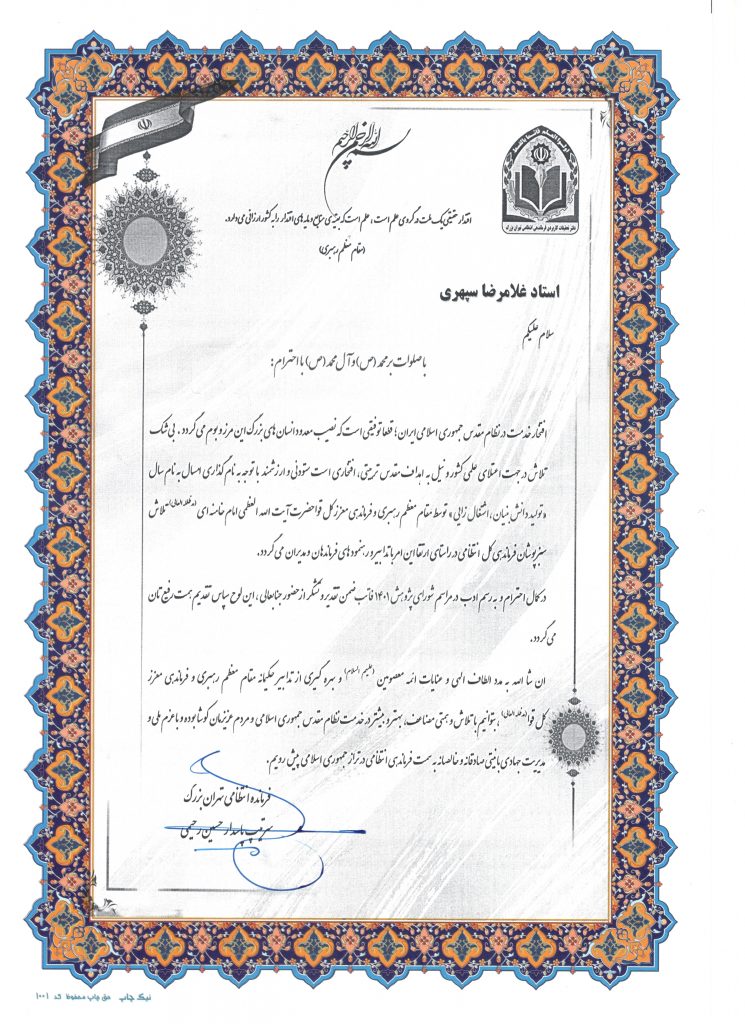 بسم الله الرحمن الرحیم
دفتر تحقیقات کاربردی فرماندهی انتظامی تهران بزرگ
اقتدار حقیقی یک ملت در گروی علم است، علم است که بقیه‌ی منابع و پایه‌های اقتدار را به کشور ارزانی می دارد.
(مقام معظم رهبری)
استاد غلامرضا سپهری
سلام علیکم
با صلوات بر محمد (ص) و آل محمد (ص) با احترام :
افتخار خدمت در نظام مقدس جمهوری اسلامی ایران ؛ قطعا توفیقی است که نصیب معدود انسان های بزرگ این مرز و بوم می گردد . بی شک
تلاش در جهت اعتلای علمی کشور و نیل به اهداف مقدس تربیتی ، افتخاری است ستودنی و ارزشمند با توجه به نام گذاری امسال به نام سال
« تولید دانش بنیان ، اشتغال زایی » توسط مقام معظم رهبری و فرماندهی معزز کل قوا حضرت آیت الله العظمی امام خامنه ای (مدظله العالی) تلاش
سبزپوشان فرماندهی کل انتظامی در راستای ارتقا این امر با تدابیر و رهنمود های فرماندهان و مدیران می گردد.
در کمال احترام و به رسم ادب در مراسم شورای پژوهش ۱۴۰۱ فاتب ضمن تقدیر و تشکر از حضور جنابعالی ، این لوح سپاس تقدیم همت رفیع تان
می گردد.
ان شا الله به مدد الطاف الهی و عنایات ائمه معصومین (علیهم السلام) و بهره گیری از تدابیر حکیمانه مقام معظم رهبری و فرماندهی معزز
کل قوا (مدظله العالی) ، بتوانیم با تلاش و همتی مضاعف، بهتر و بیشتر در خدمت نظام مقدس جمهوری اسلامی و مردم عزیزمان کوشا بوده و با عزم ملی و
مدیریت جهادی با نیتی صادقانه و خالصانه به سمت فرماندهی انتظامی در تراز جمهوری اسلامی پیش رویم.
فرمانده انتظامی تهران بزرگ
سرتیپ پاسدار حسین رحیمی
نیک چاپ حق چاپ محفوظ کد ۱۰۰۱